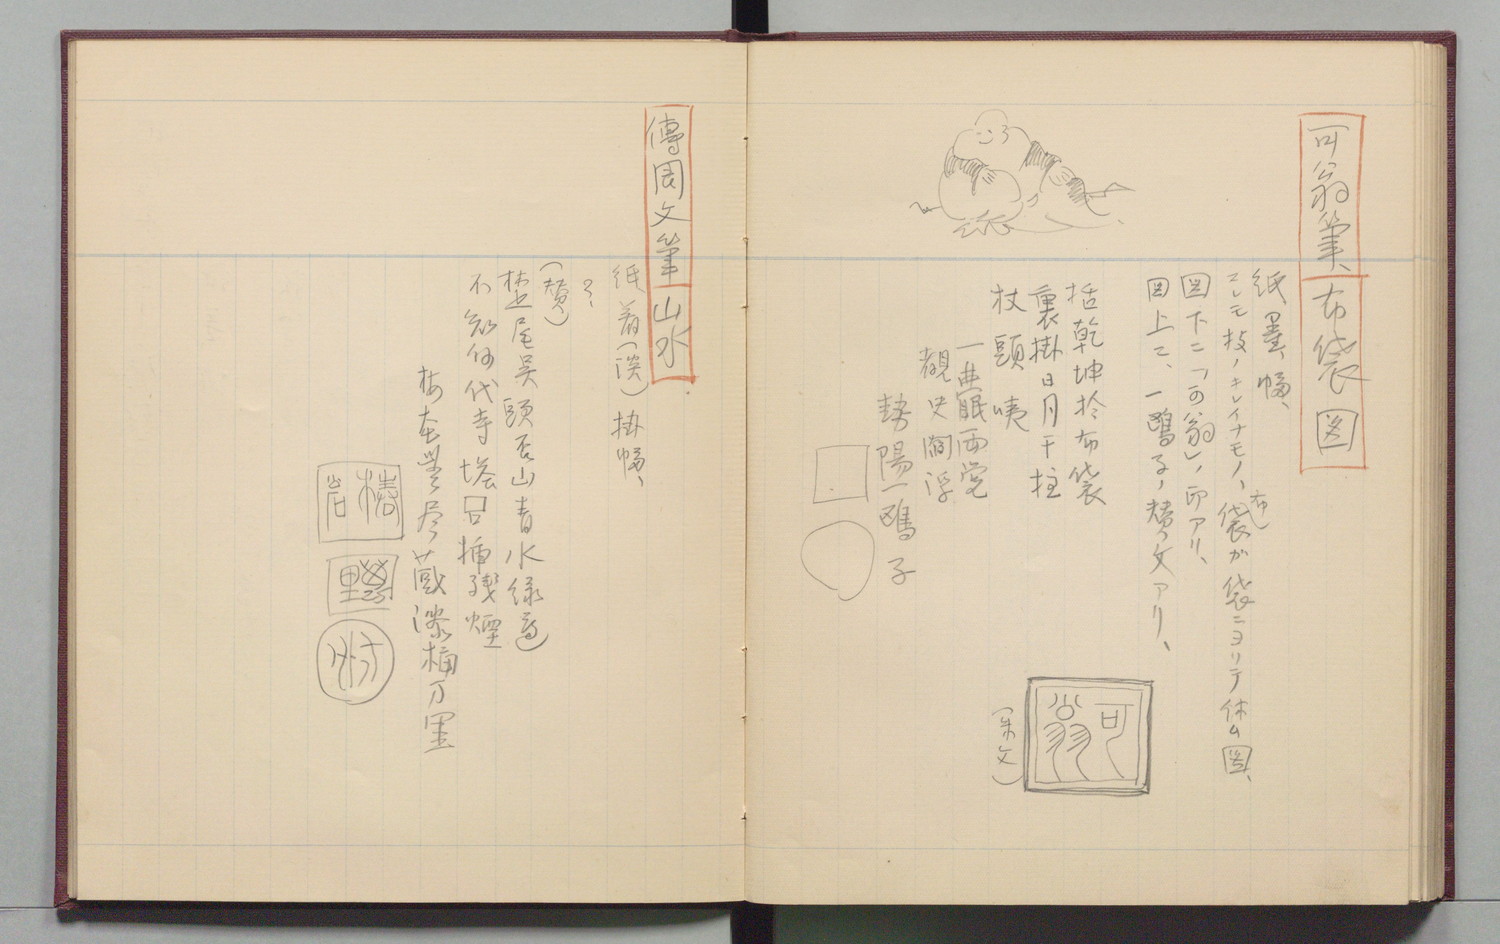 可翁筆、布袋図
紙、墨、幅、
コレモ技ノキレイナモノ、布袋ガ袋ニヨリテ休ム図、
図下ニ「可翁」ノ印アリ、
図上ニ、一鴎子ノ賛文アリ、
括乾坤於布袋
裏掛日月干柱
杖頭咦
一典眠西堂
覩史閻浮
勢陽一鴎子
可翁
(朱文)
傳周文筆山水
紙着(淡)掛幅、
?
(賛)
楚尾吴頭不山青水緑
不知何代寺塔 插残煙
漆桶万里